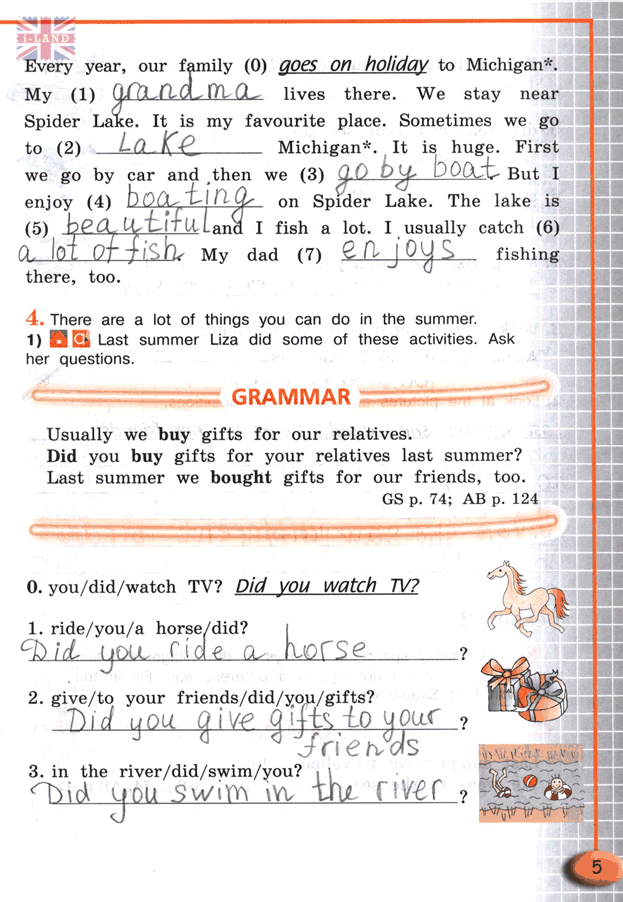 I-LAND
Every year, our family (0) goes on holiday to Michigan*.
My (1) grandma lives there. We stay near
Spider Lake. It is my favourite place. Sometimes we go
to (2) Lake Michigan*. It is huge. First
we go by car and then we (3) go by boat. But I
enjoy (4) boating on Spider Lake. The lake is
(5) beautiful and I fish a lot. I usually catch (6)
a lot of fish. My dad (7) enjoys fishing
there, too.
4. There are a lot of things you can do in the summer.
1) Last summer Liza did some of these activities. Ask
her questions.
GRAMMAR
Usually we buy gifts for our relatives.
Did you buy gifts for your relatives last summer?
Last summer we bought gifts for our friends, too.
GS p. 74; AB p. 124
0. you/did/watch TV? Did you watch TV?
1. ride/you/a horse/did?
Did you ride a horse ?
2. give/to your friends/did/you/gifts?
Did you give gifts to your ?
friends
3. in the river/did/swim/you?
Did you swim in the river ?
5